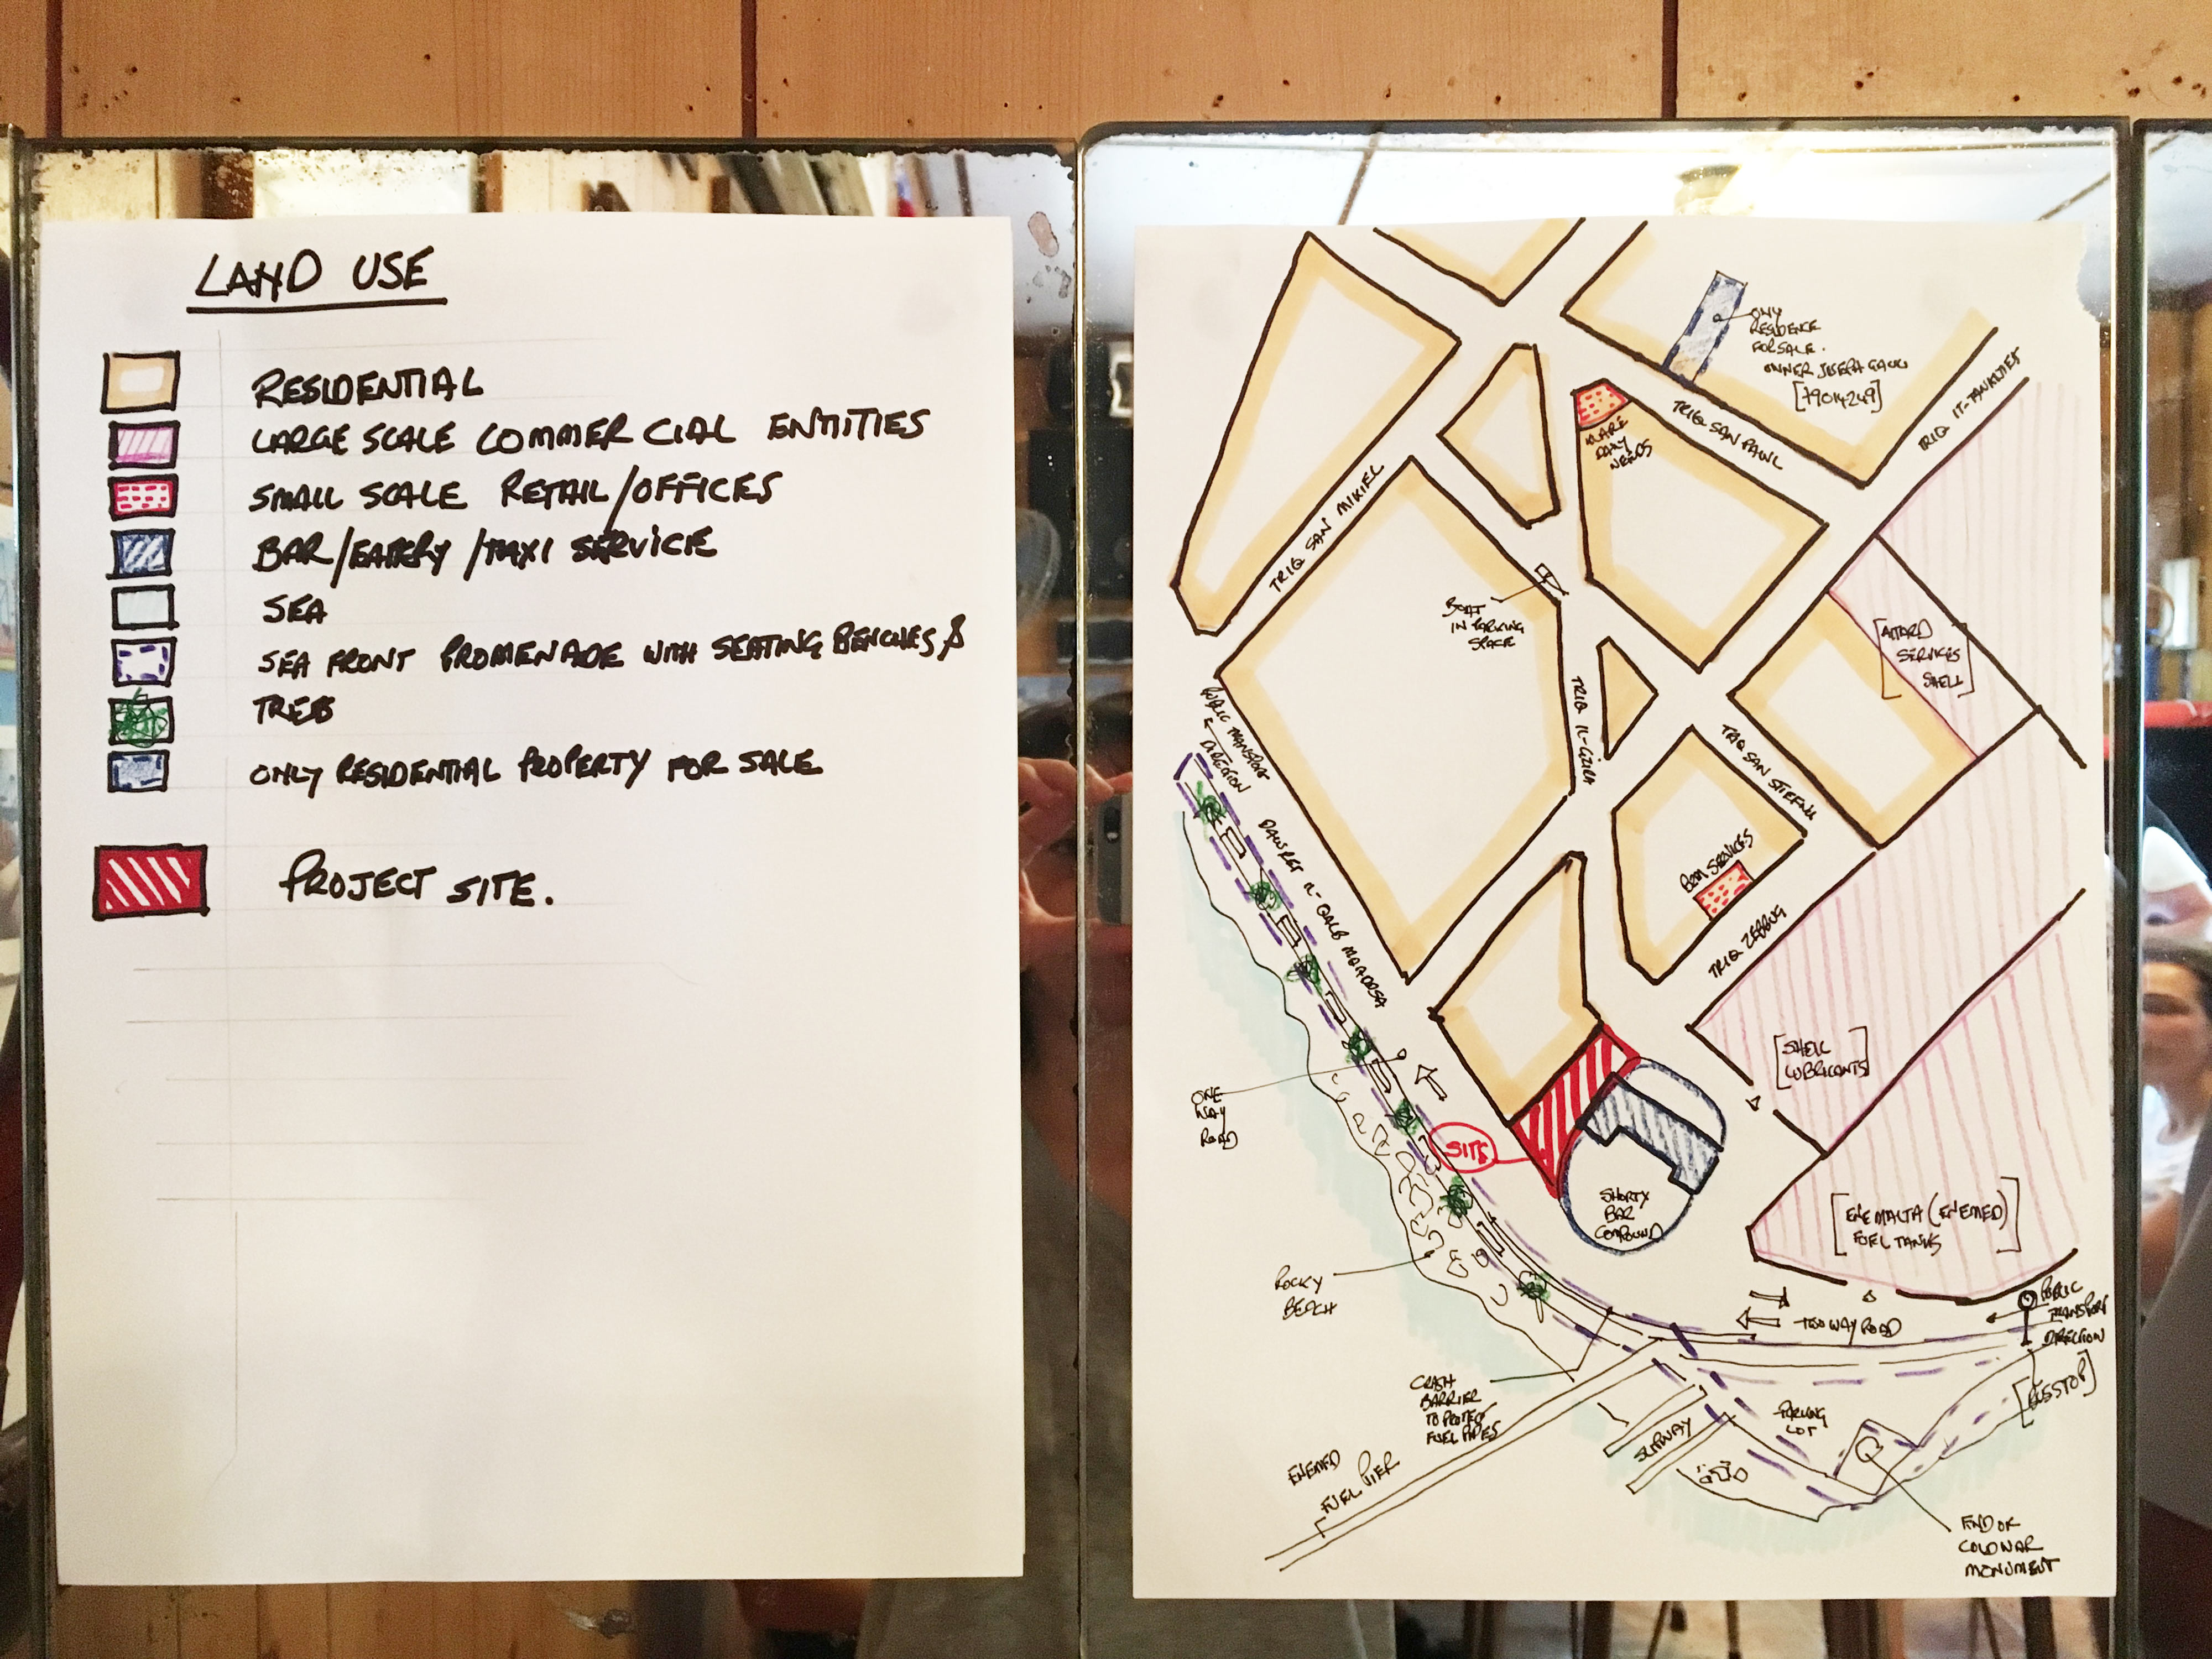 LAND USE
RESIDENTIAL
LARGE SCALE COMMERCIAL ENTITIES
SMALL SCALE RETAIL/OFFICES
BAR/EATERY/TAXI SERVICE
SEA
SEA FRONT PROMENADE WITH SEATING BENCHES &
TREES
ONLY RESIDENTIAL PROPERTY FOR SALE
PROJECT SITE.
ONLY
RESIDENCE
FOR SALE.
OWNER JOSEPH
[79014249]
TRIQ IT-TANKIJIET
TRIQ SAN PAWL
DAILY
NEEDS
TRIQ SAN MIKIEL
BOAT
IN PARKING
SPACE
[ATTARD
SERVICES
SHELL]
TRIQ IL-GZIRA
TRIQ SAN STIEFNU
PUBLIC TRANSPORT
DIRECTION
DAWRET IL-QALB MQADDSA
SERVICES
TRIQ ZEBBUG
[SHELL
LUBRICANTS]
ONE
WAY
ROAD
SITE
SHORTY
BAR
COMPOUND
[ENEMALTA (ENEMED)
FUEL TANKS]
ROCKY
BEACH
TWO WAY ROAD
PUBLIC
TRANSPORT
DIRECTION
[BUS STOP]
CRASH
BARRIER
TO PROTECT
FUEL PIPES
PARKING
LOT
SLIPWAY
ENEMED
FUEL PIER
END OF
COLD WAR
MONUMENT